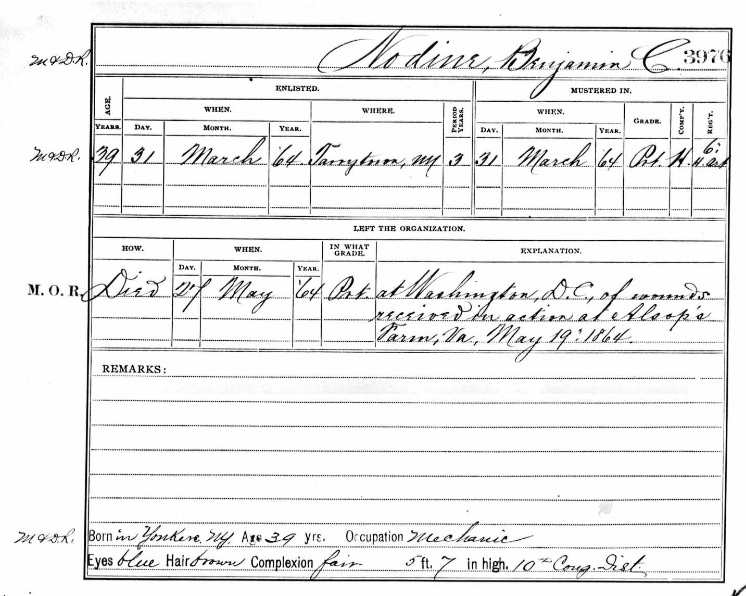 M & D.R. Nodine, Benjamin C. 3976
ENLISTED. MUSTERED IN.
AGE. WHEN. WHERE. PERIOD YEARS. WHEN. GRADE. COMP'Y. REG'T.
YEARS. DAY. MONTH. YEAR. DAY. MONTH. YEAR.
M & D.R. 39 31 March '64 Tarrytown, NY 3 31 March '64 Pvt. H. 6" H. Art
LEFT THE ORGANIZATION.
HOW. WHEN. IN WHAT GRADE. EXPLANATION.
DAY. MONTH. YEAR.
M. O. R. Died 27 May '64 Pvt. at Washington, D.C., of wounds
received in action at Alsop's
Farm, Va., May 19" 1864.
REMARKS:
M & D.R. Born in Yonkers, NY. Age 39 yrs. Occupation Mechanic
Eyes blue Hair brown Complexion fair 5 ft. 7 in high. 10th Cong. Dist.